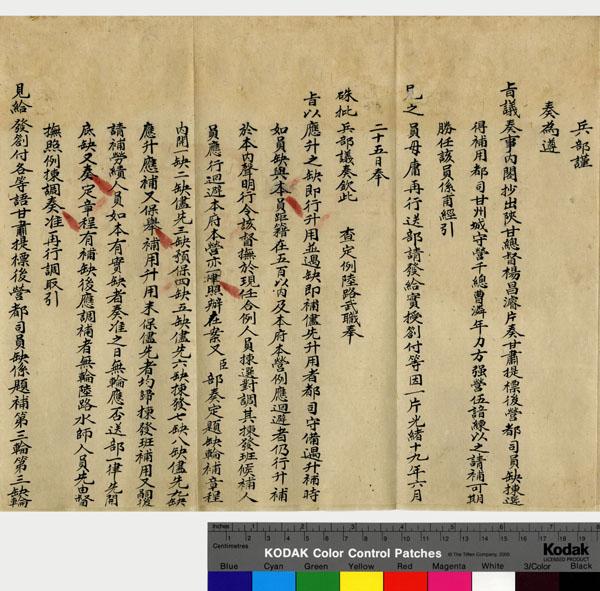 兵部謹
奏為遵
旨議奏事内閣抄出陝甘總督楊昌濬片奏甘肅提標後營都司員缺揀選
得補用都司甘州城守營千總曹濟年力方强營伍諳練以之請補可期
勝任該員係甫經引
見之員毋庸再行送部請發給實授劄付等因一片光緒十九年六月
二十五日奉
硃批兵部議奏欽此 查定例陸路武職奉
旨以應升之缺即行升用並遇缺即補儘先升用者都司守備遇升補時
如員缺與本員距籍在五百以内及本府本營例應迴避者仍行升補
於本内聲明行令該督撫於現任合例人員揀選對調其揀發班候補人
員應行迴避本府本營亦一律照辦在案又臣部奏定題缺輪補章程
内開一缺二缺儘先三缺預保四缺五缺儘先六缺揀發七缺八缺儘先九缺
應升應補又保舉補用升用未保儘先者均歸揀發班補用又關後
請補勞績人員如本有實缺者奏准之日無輪應否送部一律先開
底缺又奏定章程有補缺後應調補者無輪陸路水師人員先由督
撫照例揀調奏准再行調取引
見給發劄付各等語甘肅提標後營都司員缺係題補第三輪第三缺輪
Inches
Centimetres
KODAK Color Control Patches
© The Tiffen Company, 2000
Kodak
LICENSED PRODUCT
Blue Cyan Green Yellow Red Magenta White 3/Color Black